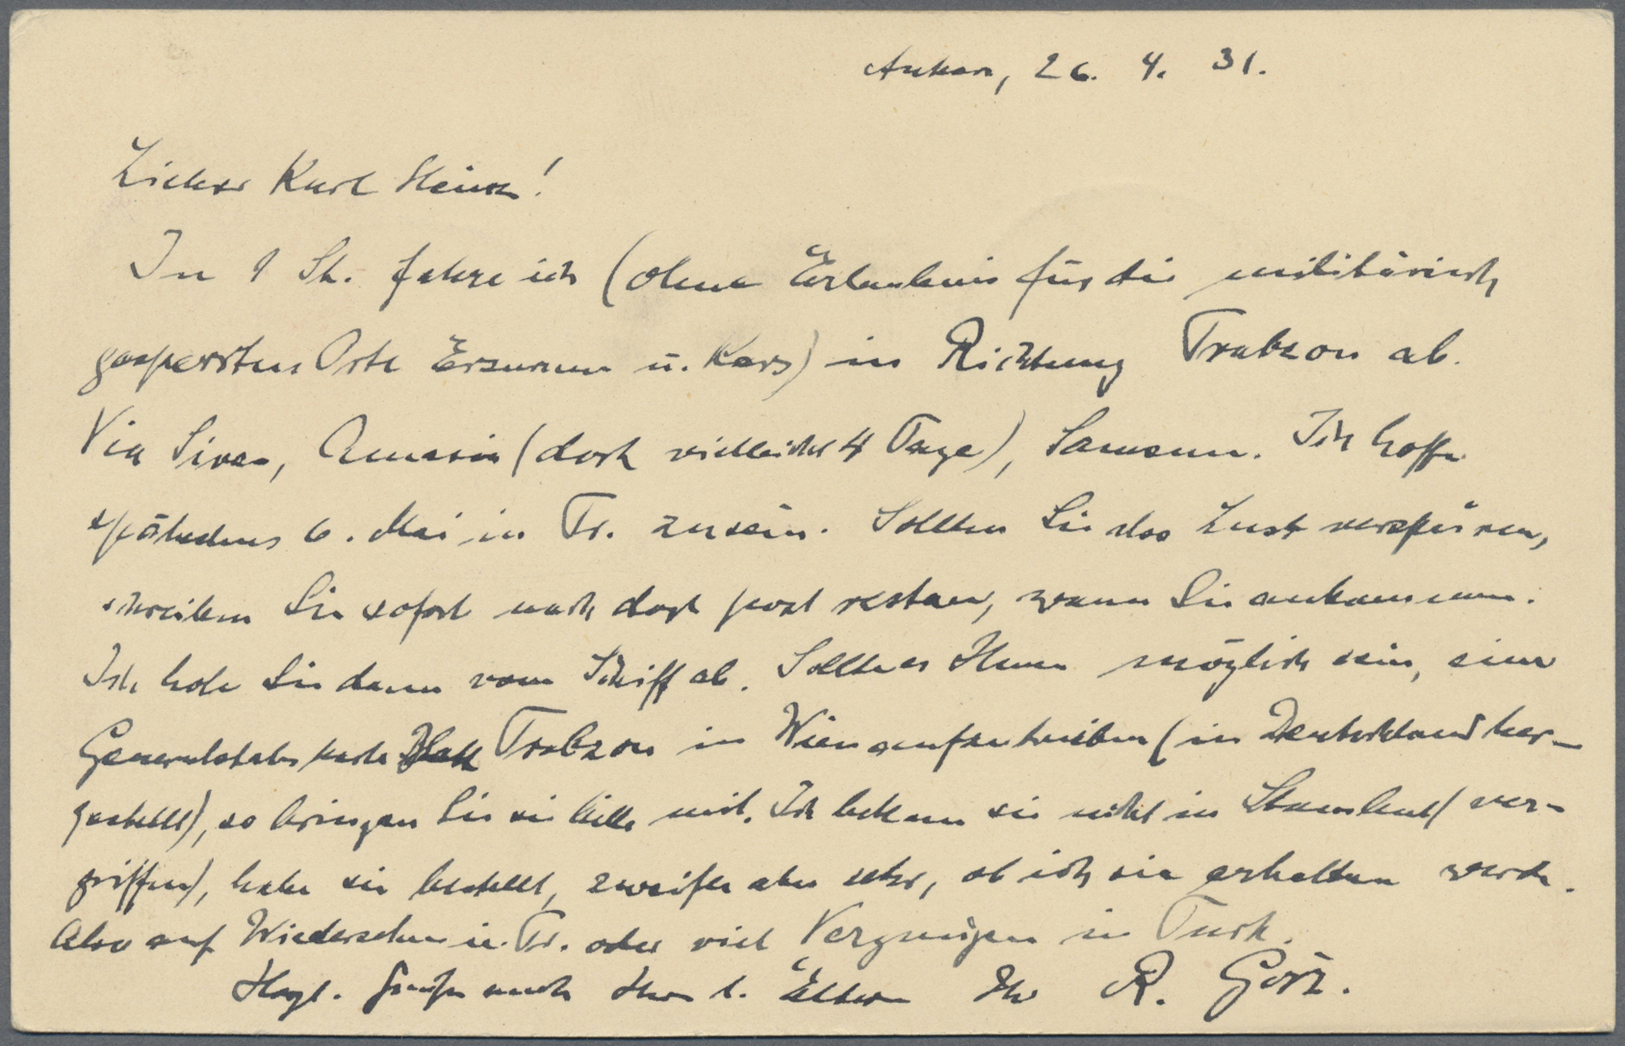 Ankara, 26. 4. 31.
Lieber Karl Heinz!
In 1 St. fahre ich (ohne Erlaubnis für die militärisch
gesperrten Orte Erzurum u. Kars) in Richtung Trabzon ab.
Via Sivas, Amasia (dort vielleicht 4 Tage), Samsun. Ich hoffe
spätestens 6. Mai in Tr. zu sein. Sollten Sie das Lust verspüren,
schreiben Sie sofort nach dort post restan, wann Sie ankommen.
Ich hole Sie dann vom Schiff ab. Sollte es Ihnen möglich sein, eine
Generalstabskarte Blatt Trabzon in Wien aufzutreiben (in Deutschland her-
gestellt), so bringen Sie sie bitte mit. Ich bekam sie nicht in Stambul (ver-
griffen), habe sie bestellt, zweifle aber sehr, ob ich sie erhalten werde.
Also auf Wiedersehen in Tr. oder viel Vergnügen in Turk.
Herzl. Grüße auch Ihren l. Eltern Ihr R. Görz.